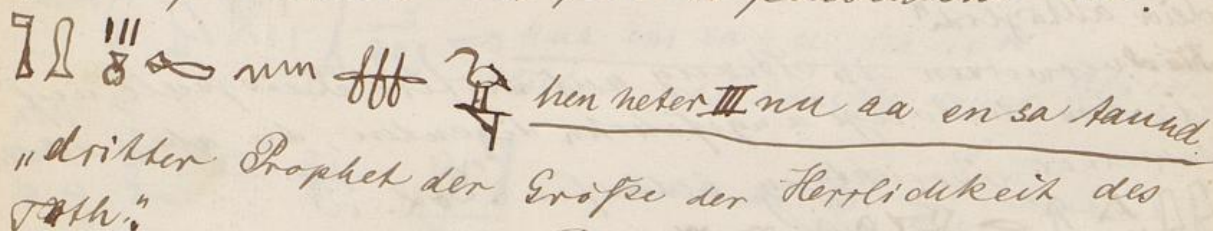 hen neter III nu aa en sa
„dritter Prophet der Größe der Herrlichkeit des
Toth.“